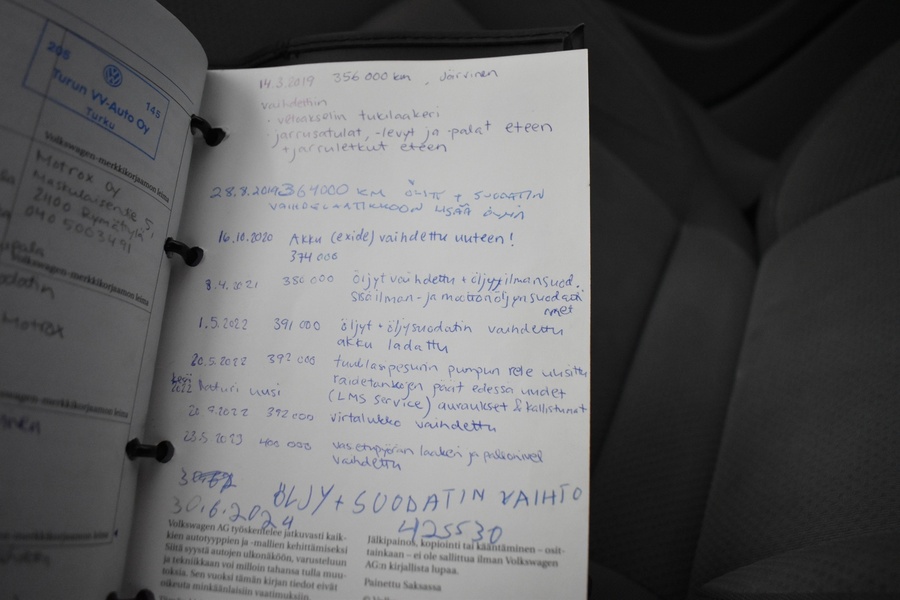 205
145
Turun VV-Auto Oy
Turku
Volkswagen-merkkikorjaamon leima
Motrox Oy
Maskulaisense 5,
2400 Rymättylä
040 5003491
Volkswagen-merkkikorjaamon leima
Motrox
Volkswagen-merkkikorjaamon leima
14.3.2019 356 000 km , Järvinen
vaihdettiin
- vetoakselin tukilaakeri
- jarrusatulat, -levyt ja -palat eteen
+jarruletkut eteen
28.8.2019 364000 KM ÖLJY + SUODATIN
VAIHDELAATIKKOON LISÄÄ ÖLJYÄ
16.10.2020 Akku (exide) vaihdettu uuteen!
374 000
8.4.2021 380 000 öljyt vaihdettu + öljy, ilmansuod.
sisäilman- ja moottoriöljynsuodatti
met
1.5.2022 391 000 öljyt + öljysuodatin vaihdettu
akku ladattu
20.5.2022 392 000 tuulilasipesurin pumpun rele uusittu
raidetankojen päät edessä uudet
(LMS Service) auraukset & kallistumat
kesä 2022 laturi uusi
20.9.2022 392000 virtalukko vaihdettu
23.5 2023 400 000 vas etupyörän laakeri ja pallonivel
vaihdettu
30.6.2024 ÖLJY + SUODATIN VAIHTO
425530
Volkswagen AG työskentelee jatkuvasti kaik-
kien autotyyppien ja -mallien kehittämiseksi
Siitä syystä autojen ulkonäköön, varusteluun
ja tekniikkaan voi milloin tahansa tulla muu-
toksia. Sen vuoksi tämän kirjan tiedot eivät
oikeuta minkäänlaisiin vaatimuksiin.
Jälkipainos, kopiointi tai kääntäminen – osit-
tainkaan – ei ole sallittua ilman Volkswagen
AG:n kirjallista lupaa.
Painettu Saksassa